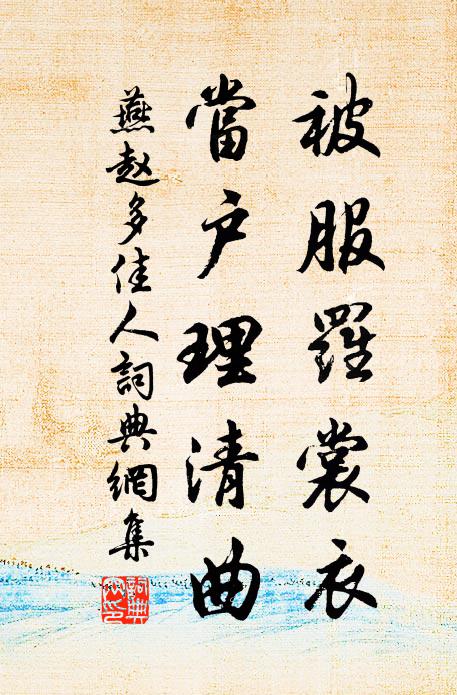 被服羅裳衣
當户理清曲
燕赵多佳人詞典網集